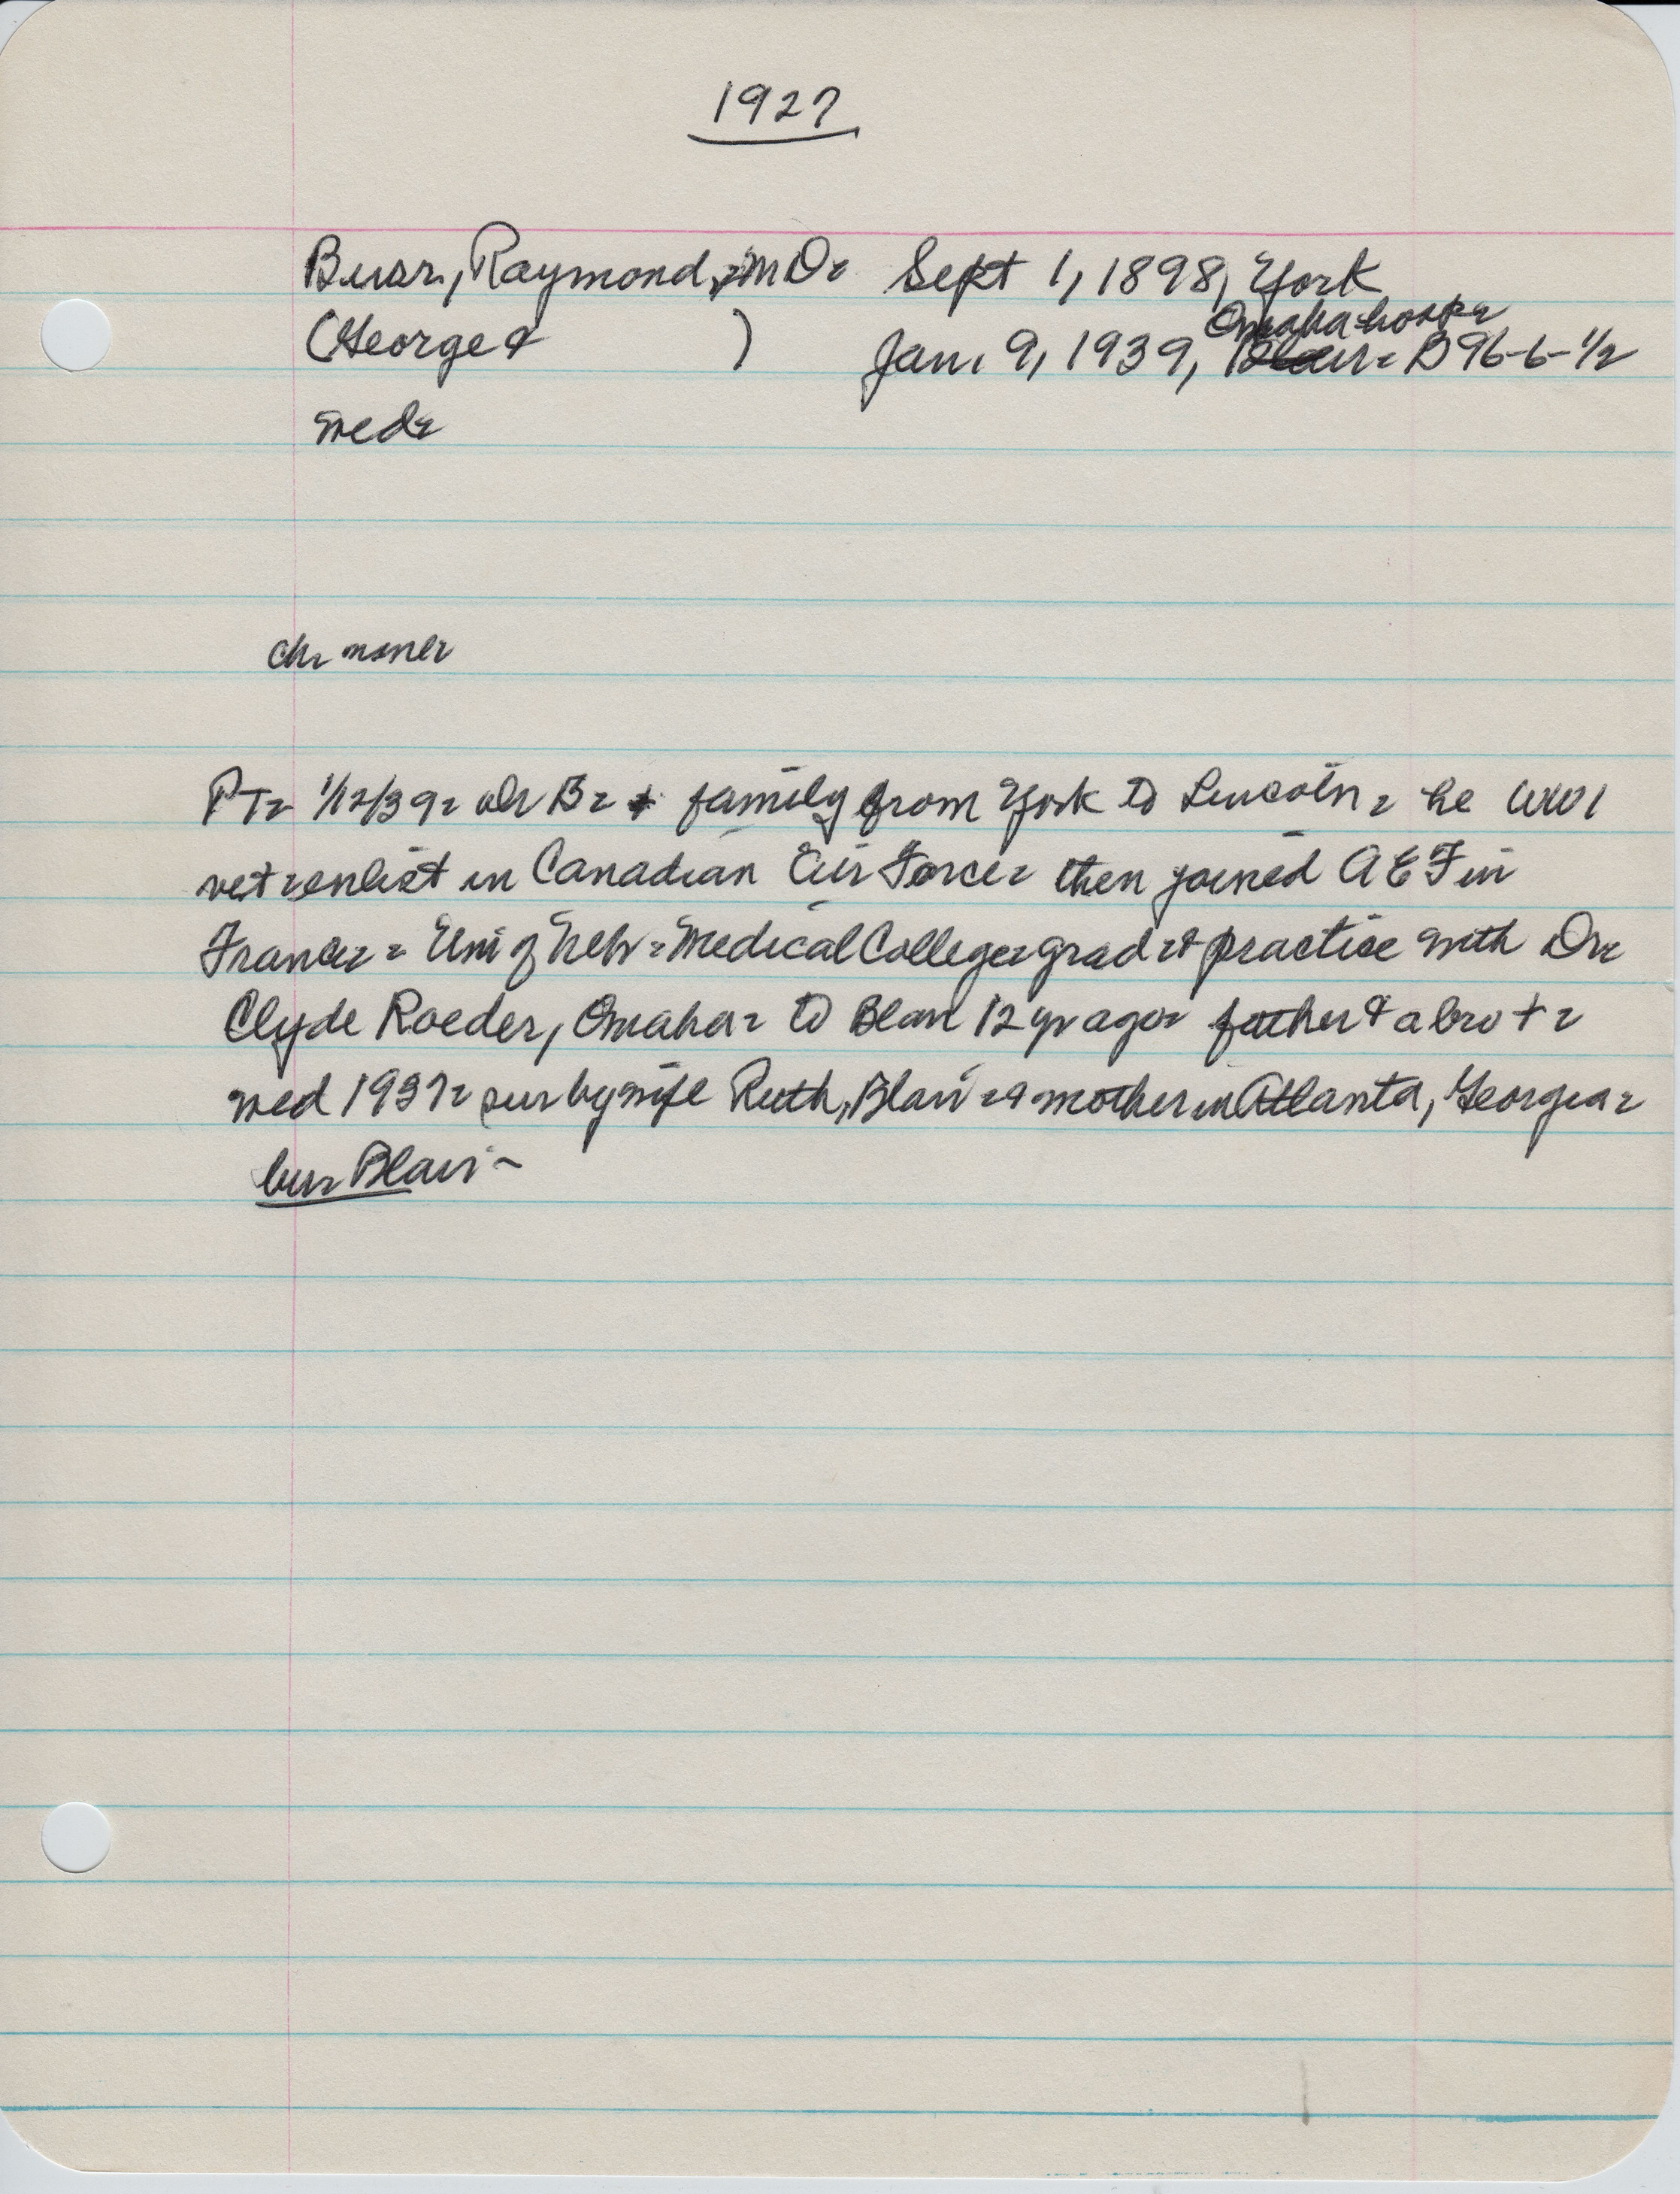 1927
Burr, Raymond, MD- Sept 1, 1898, York
Omaha hosp-
(George & ) Jan. 9, 1939, Blair- B96-6-1/2
wed-
ch- none-
PT- 1/12/39- dr B- family from York to Lincoln- he WW1
vet- enlist in Canadian Air Force- then joined AEF in
France- Uni of Neb- Medical College- grad- & practice with Dr-
Clyde Roeder, Omaha- to Blair 12 yr ago- father & a bro +-
wed 1937- sur by wife Ruth, Blair- & mother in Atlanta, Georgia-
bur Blair-